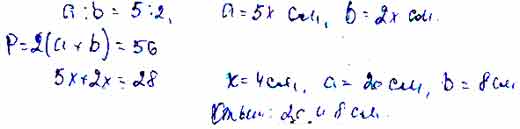 a : b = 5 : 2, a = 5x см, b = 2x см.
P = 2(a + b) = 56
5x + 2x = 28 x = 4 см, a = 20 см, b = 8 см
Ответ: 20 и 8 см.